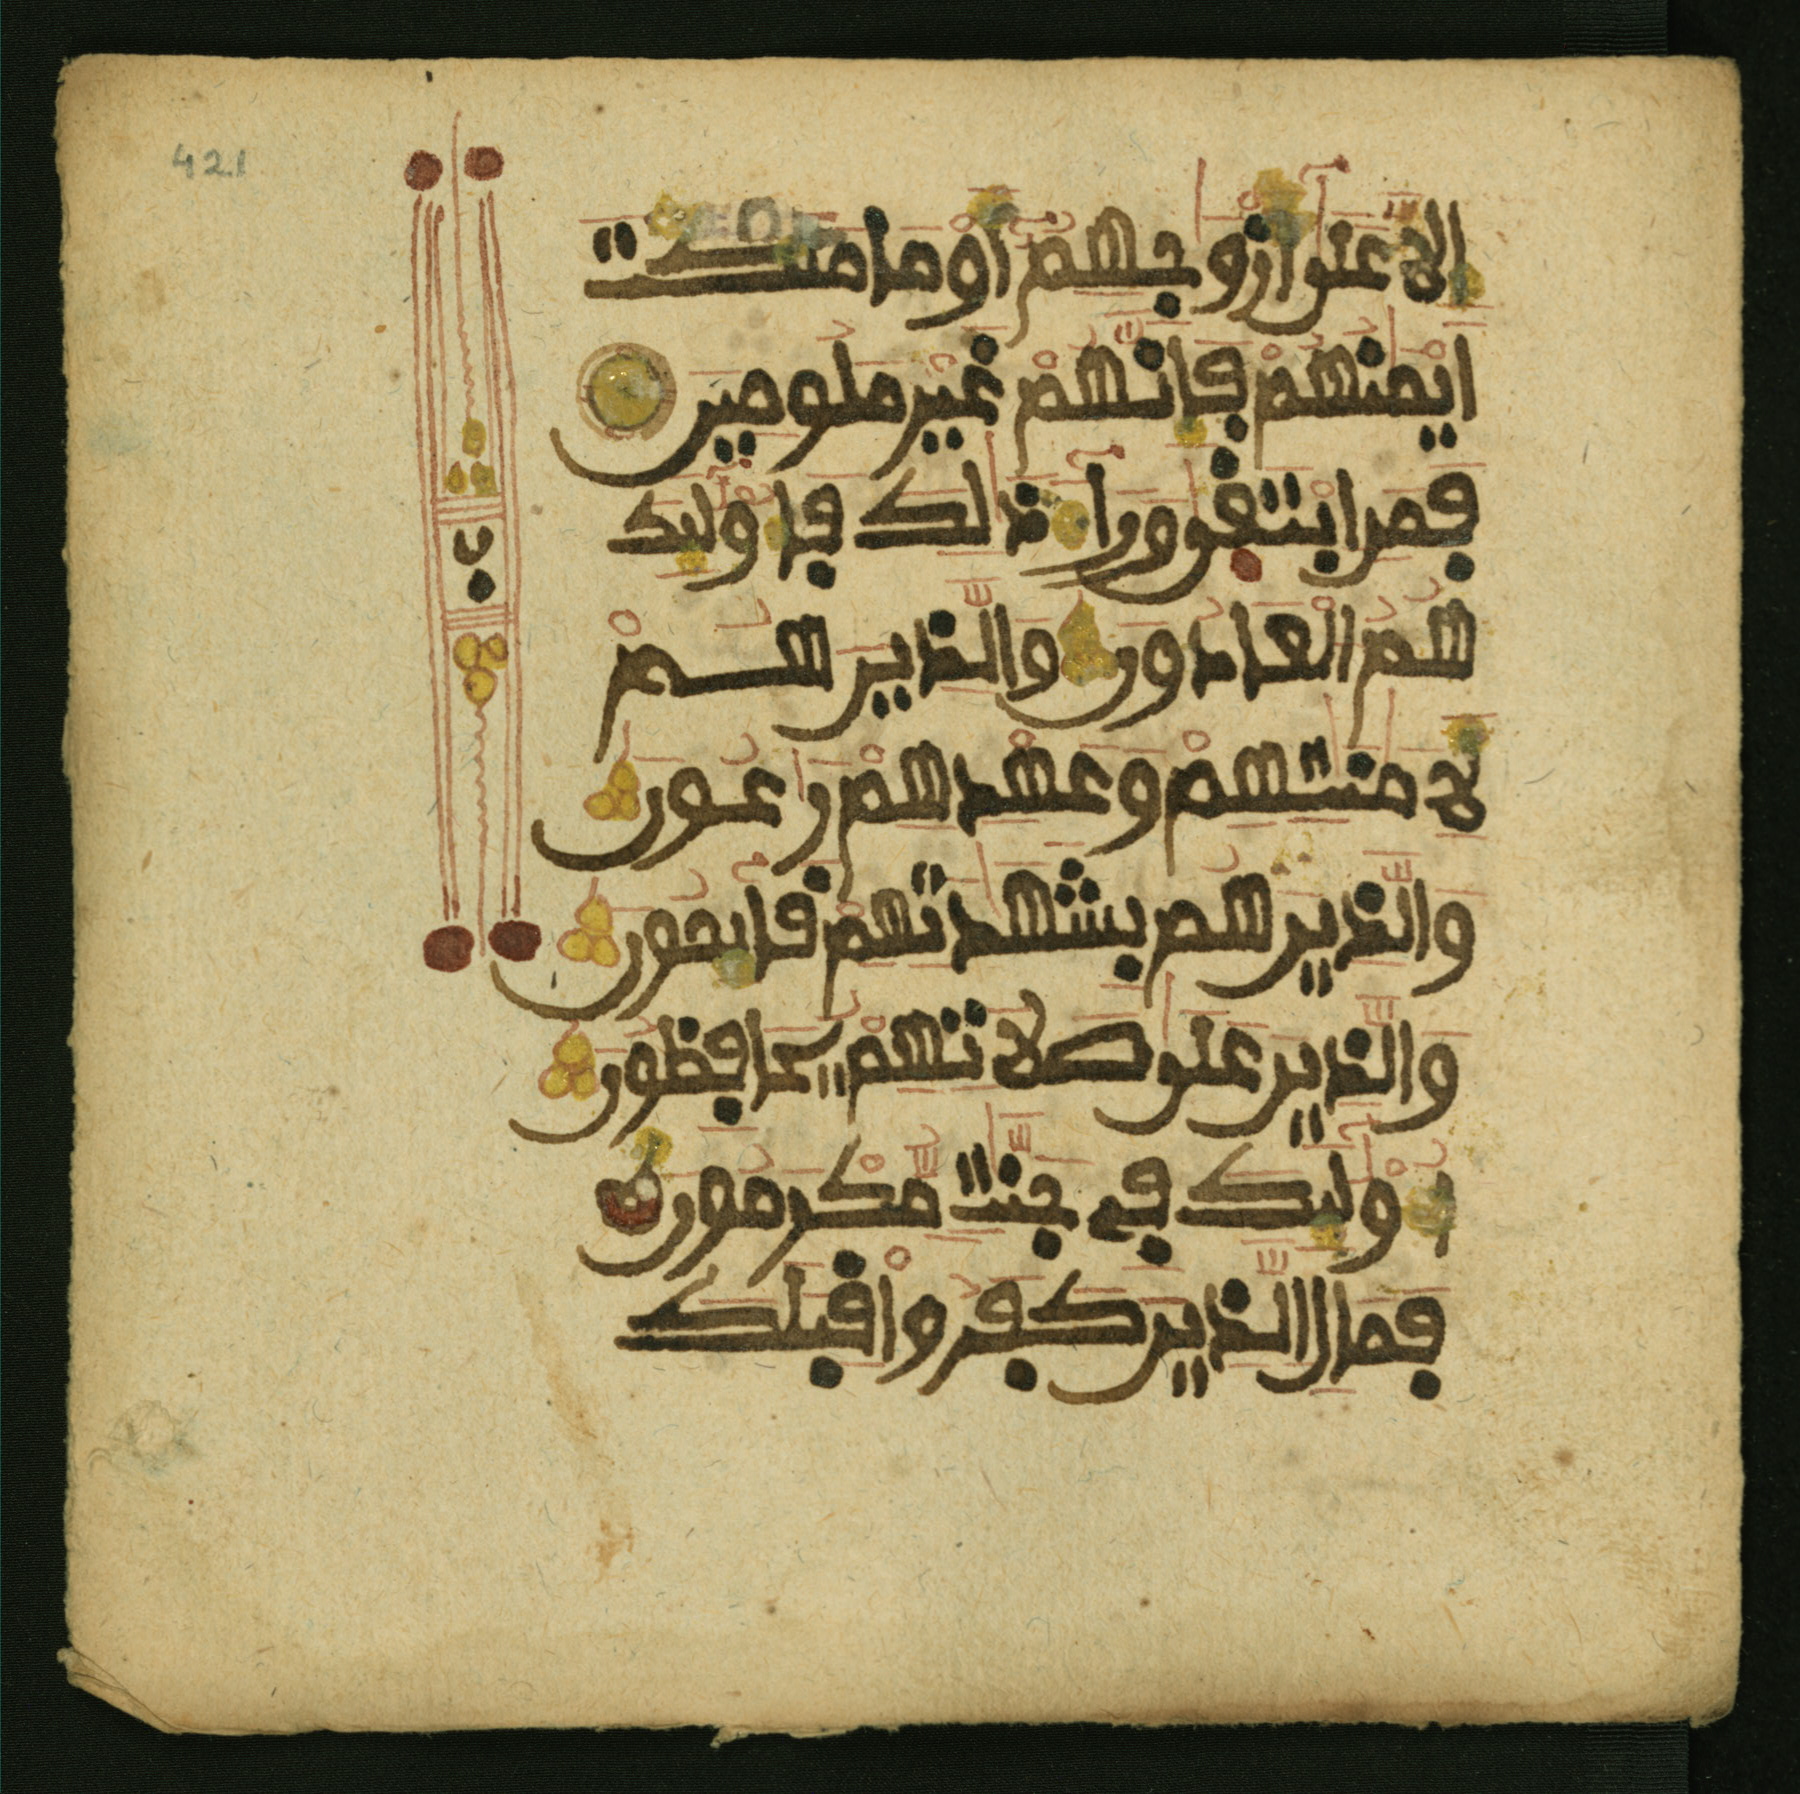 421
إلا على أزوجهم أو ما ملكت
أيمنهم فإنهم غير ملومين
فمن ابتغى وراء ذلك فأوليك
هم العادون والذين هم
لأمنتهم وعهدهم رعون
والذين هم بشهدتهم قايمون
والذين على صلاتهم يحافظون
أوليك في جنت مكرمون
فمال الذين كفروا قبلك